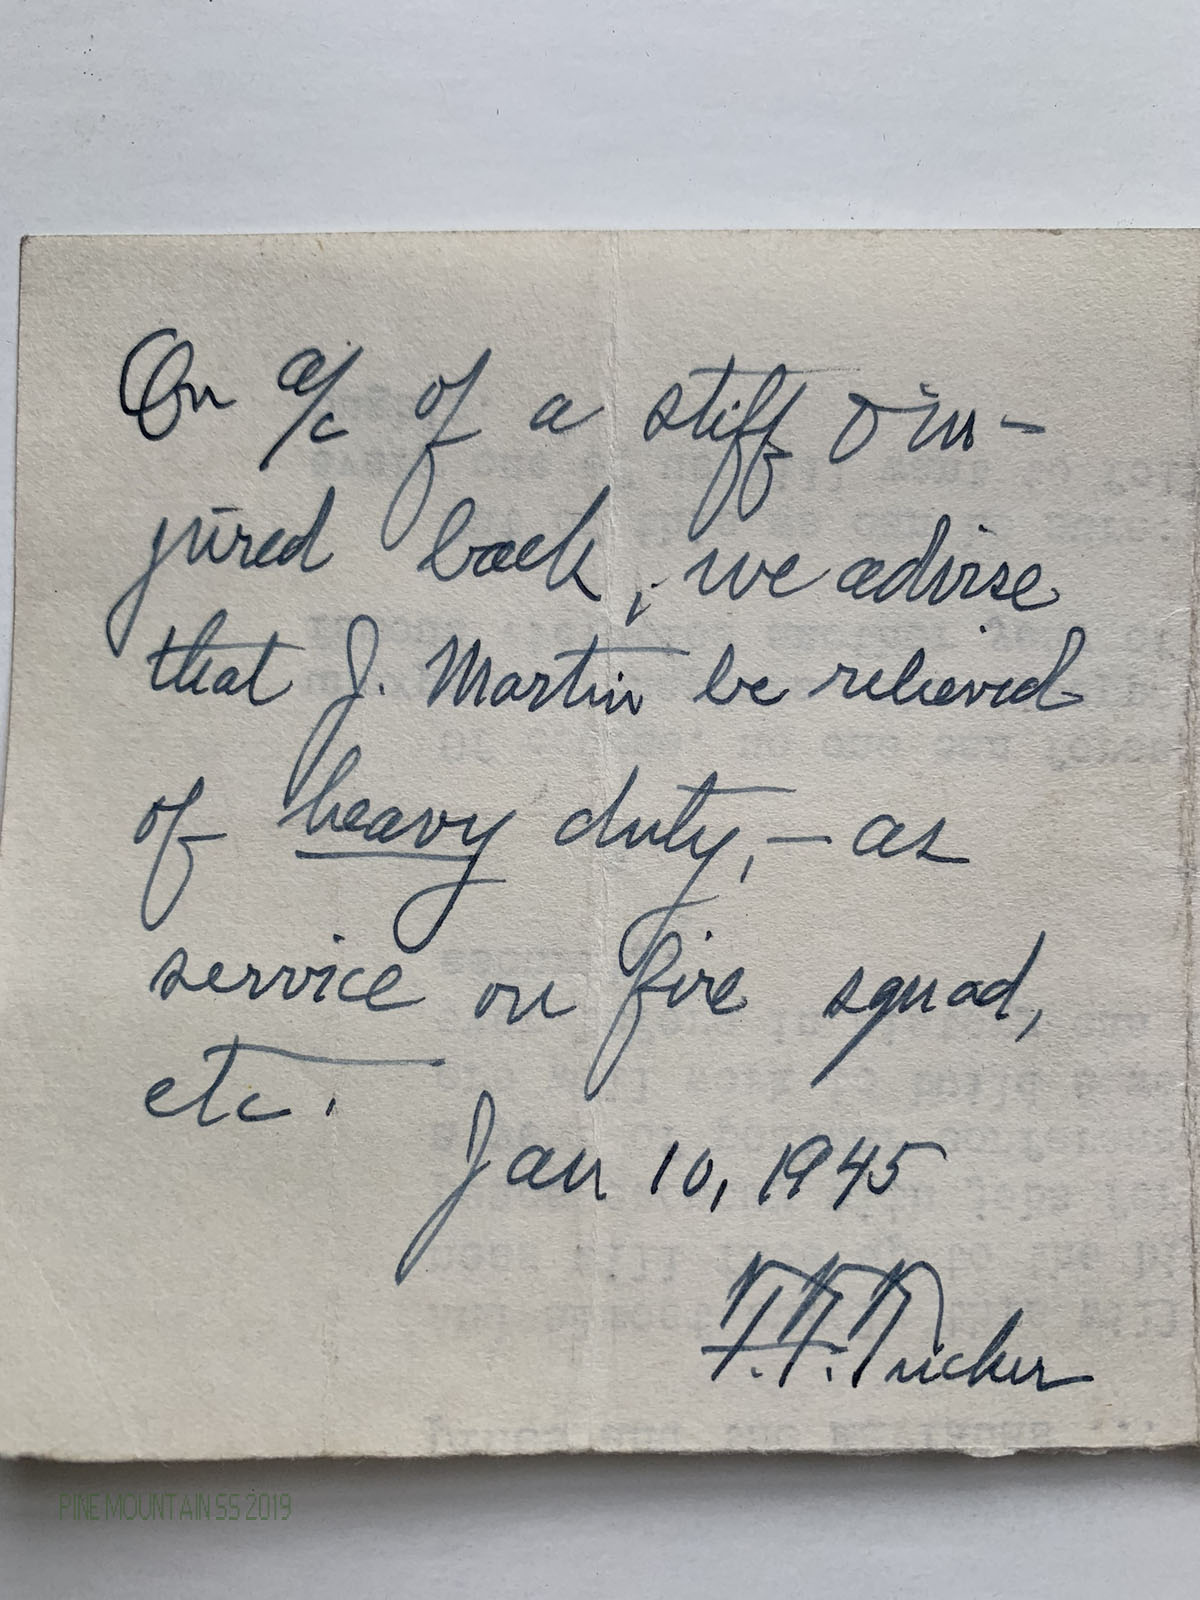 On a/c of a stiff & in-
jured back, we advise
that J. Martin be relieved
of heavy duty, – as
service on fire squad,
etc.
Jan 10, 1945
F. F. Tucker
PINE MOUNTAIN SS 2019